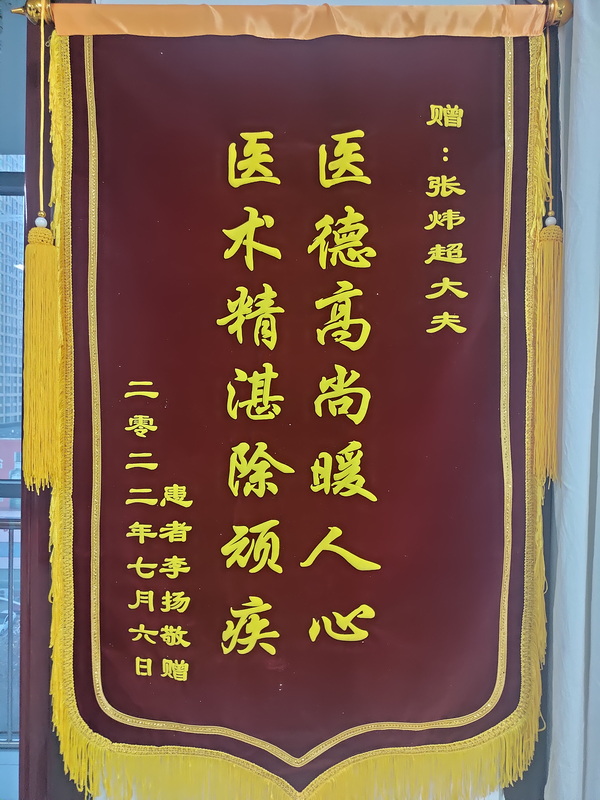 赠：张炜超大夫
医德高尚暖人心
医术精湛除顽疾
患者李扬敬赠
二零二二年七月六日